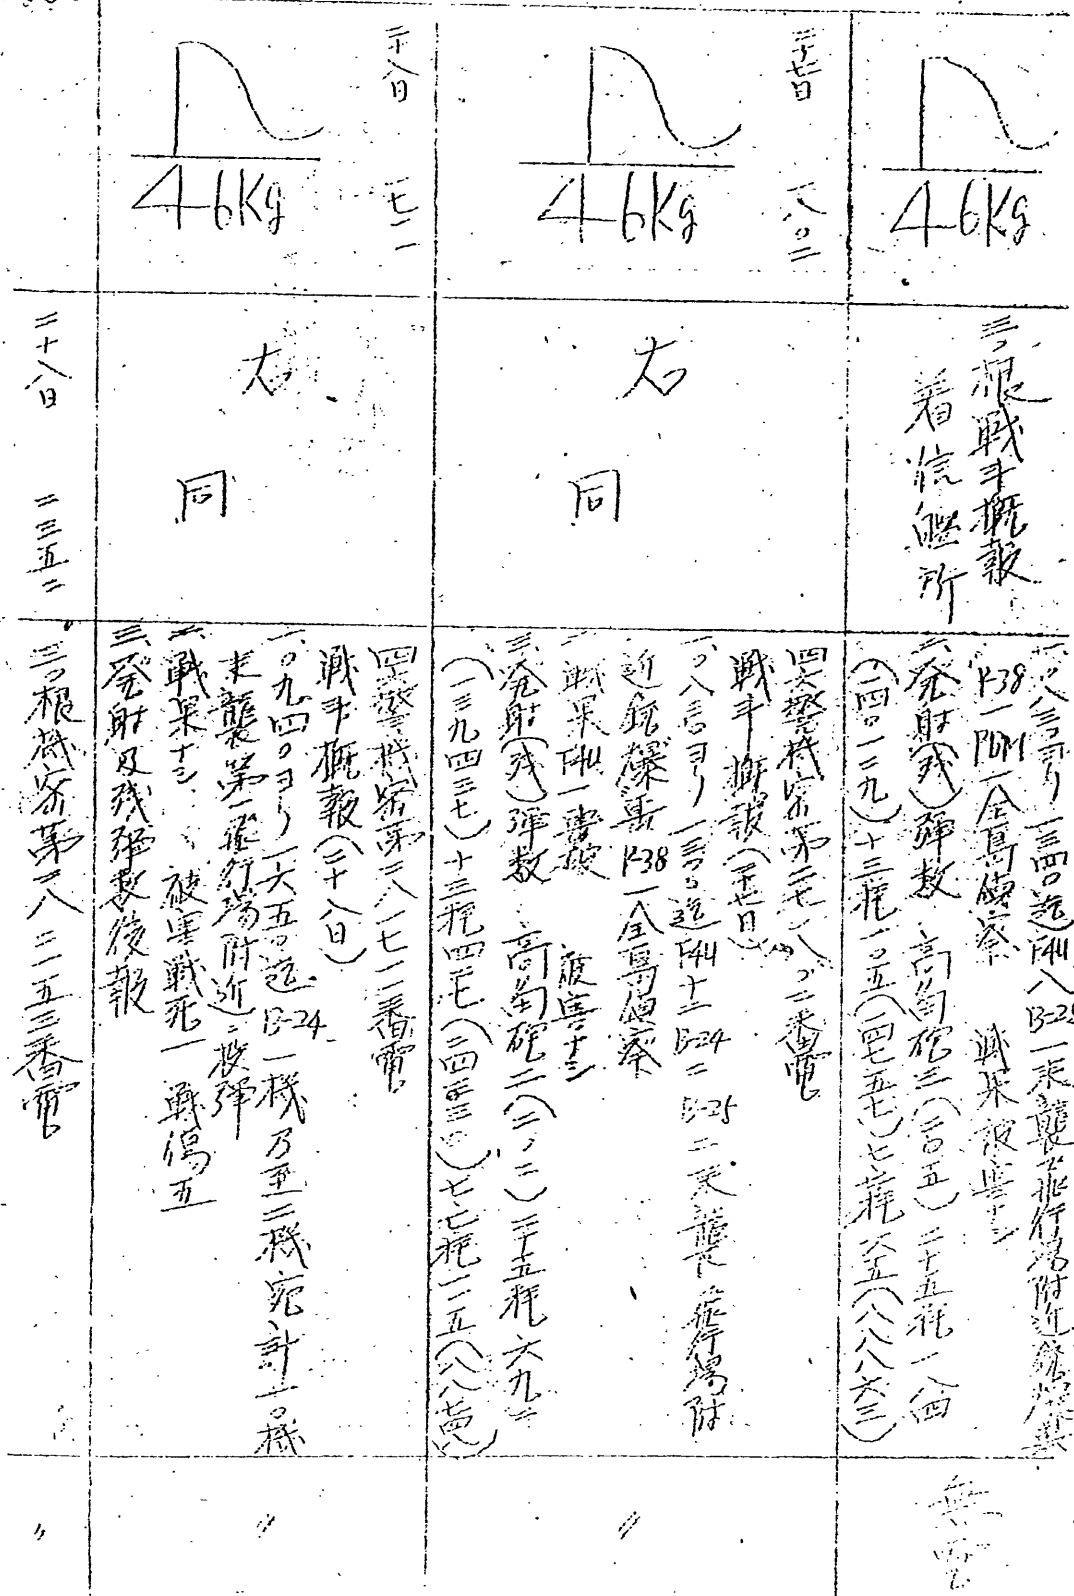 46Kg
三〇根戦斗概報
着信艦所
一、〇八三〇ヨリ一三四〇迄F4U八 B-25一来襲飛行場附近銃爆撃
P-38一 PBM一全島偵察 戦果被害ナシ
二、発射(残)弾数 高角砲三(二〇五)二十五粍一八四
十三粍一〇五(四七五七)七七粍
無電
二十七日 一八〇二
46Kg
右
同
四六警機密第二七一八〇二番電
戦斗概報(二十七日)
一、〇八三〇ヨリ一三〇〇迄F4U十二 B-24二 B-25二来襲飛行場附
近銃爆撃P-38一全島偵察
二、戦果F4U一撃破 被害ナシ
三、発射(残)弾数 高角砲二八 二十五粍六九二
(一三九四三七)十三粍 七七粍一一五
〃
二十八日 一七一一
46Kg
右
同
四六警機密第二八一七一一番電
戦斗概報(二十八日)
一、〇九四〇ヨリ一六五〇迄B-24一機乃至二機宛計一〇機
来襲第一飛行場附近ニ投弾
二、戦果ナシ 被害戦死一 戦傷五
三、発射及残弾数後報
〃
二十八日 二三五二
三〇根機密第二八二一五三番電
〃